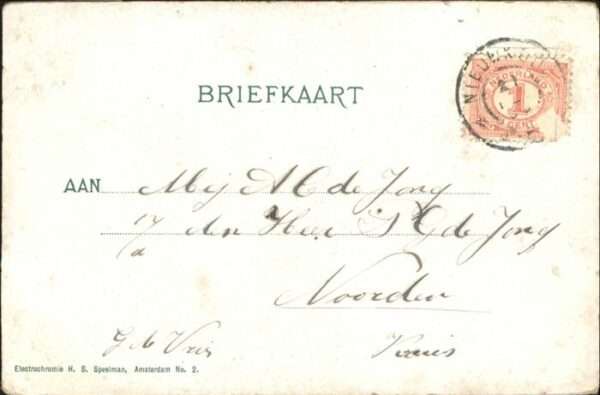 BRIEFKAART
NEDERLAND
1
CENT
AAN Mej A C de Jong
p/a den Heer S G de Jong
Noorden
G de Vries
Electrochromie H. S. Speelman, Amsterdam No. 2.